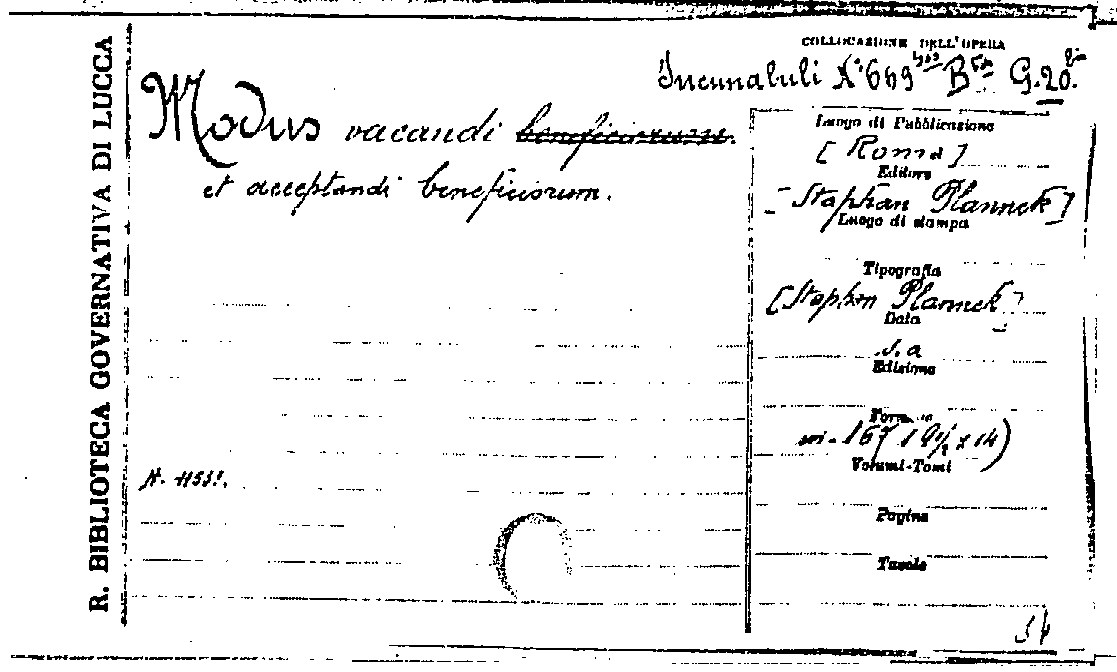 R. BIBLIOTECA GOVERNATIVA DI LUCCA
COLLOCAZIONE DELL'OPERA
Incunabuli N° 669 B G.20.
Modus vacandi beneficiorum.
et acceptandi beneficiorum.
Luogo di Pubblicazione
[Roma]
Editore
[Stephan Plannck]
Luogo di stampa
Tipografia
[Stephan Plannck]
Data
s.a
Edizione
Formato
in-16° (19½ x 14)
Volumi-Tomi
H. 11551.
Pagine
Tavole
54